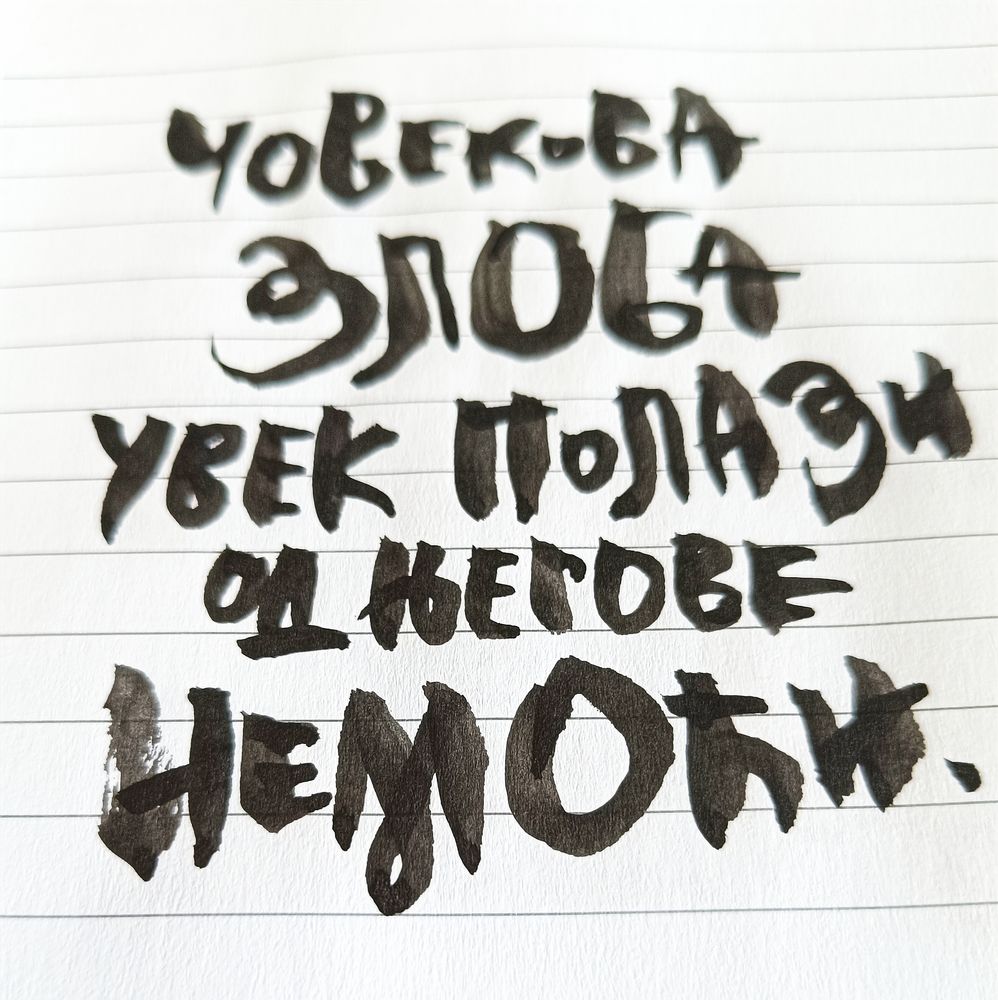 ЧОВЕКОВА
ЗЛОБА
УВЕК ПОЛАЗИ
ОД ЊЕГОВЕ
НЕМОЋИ.